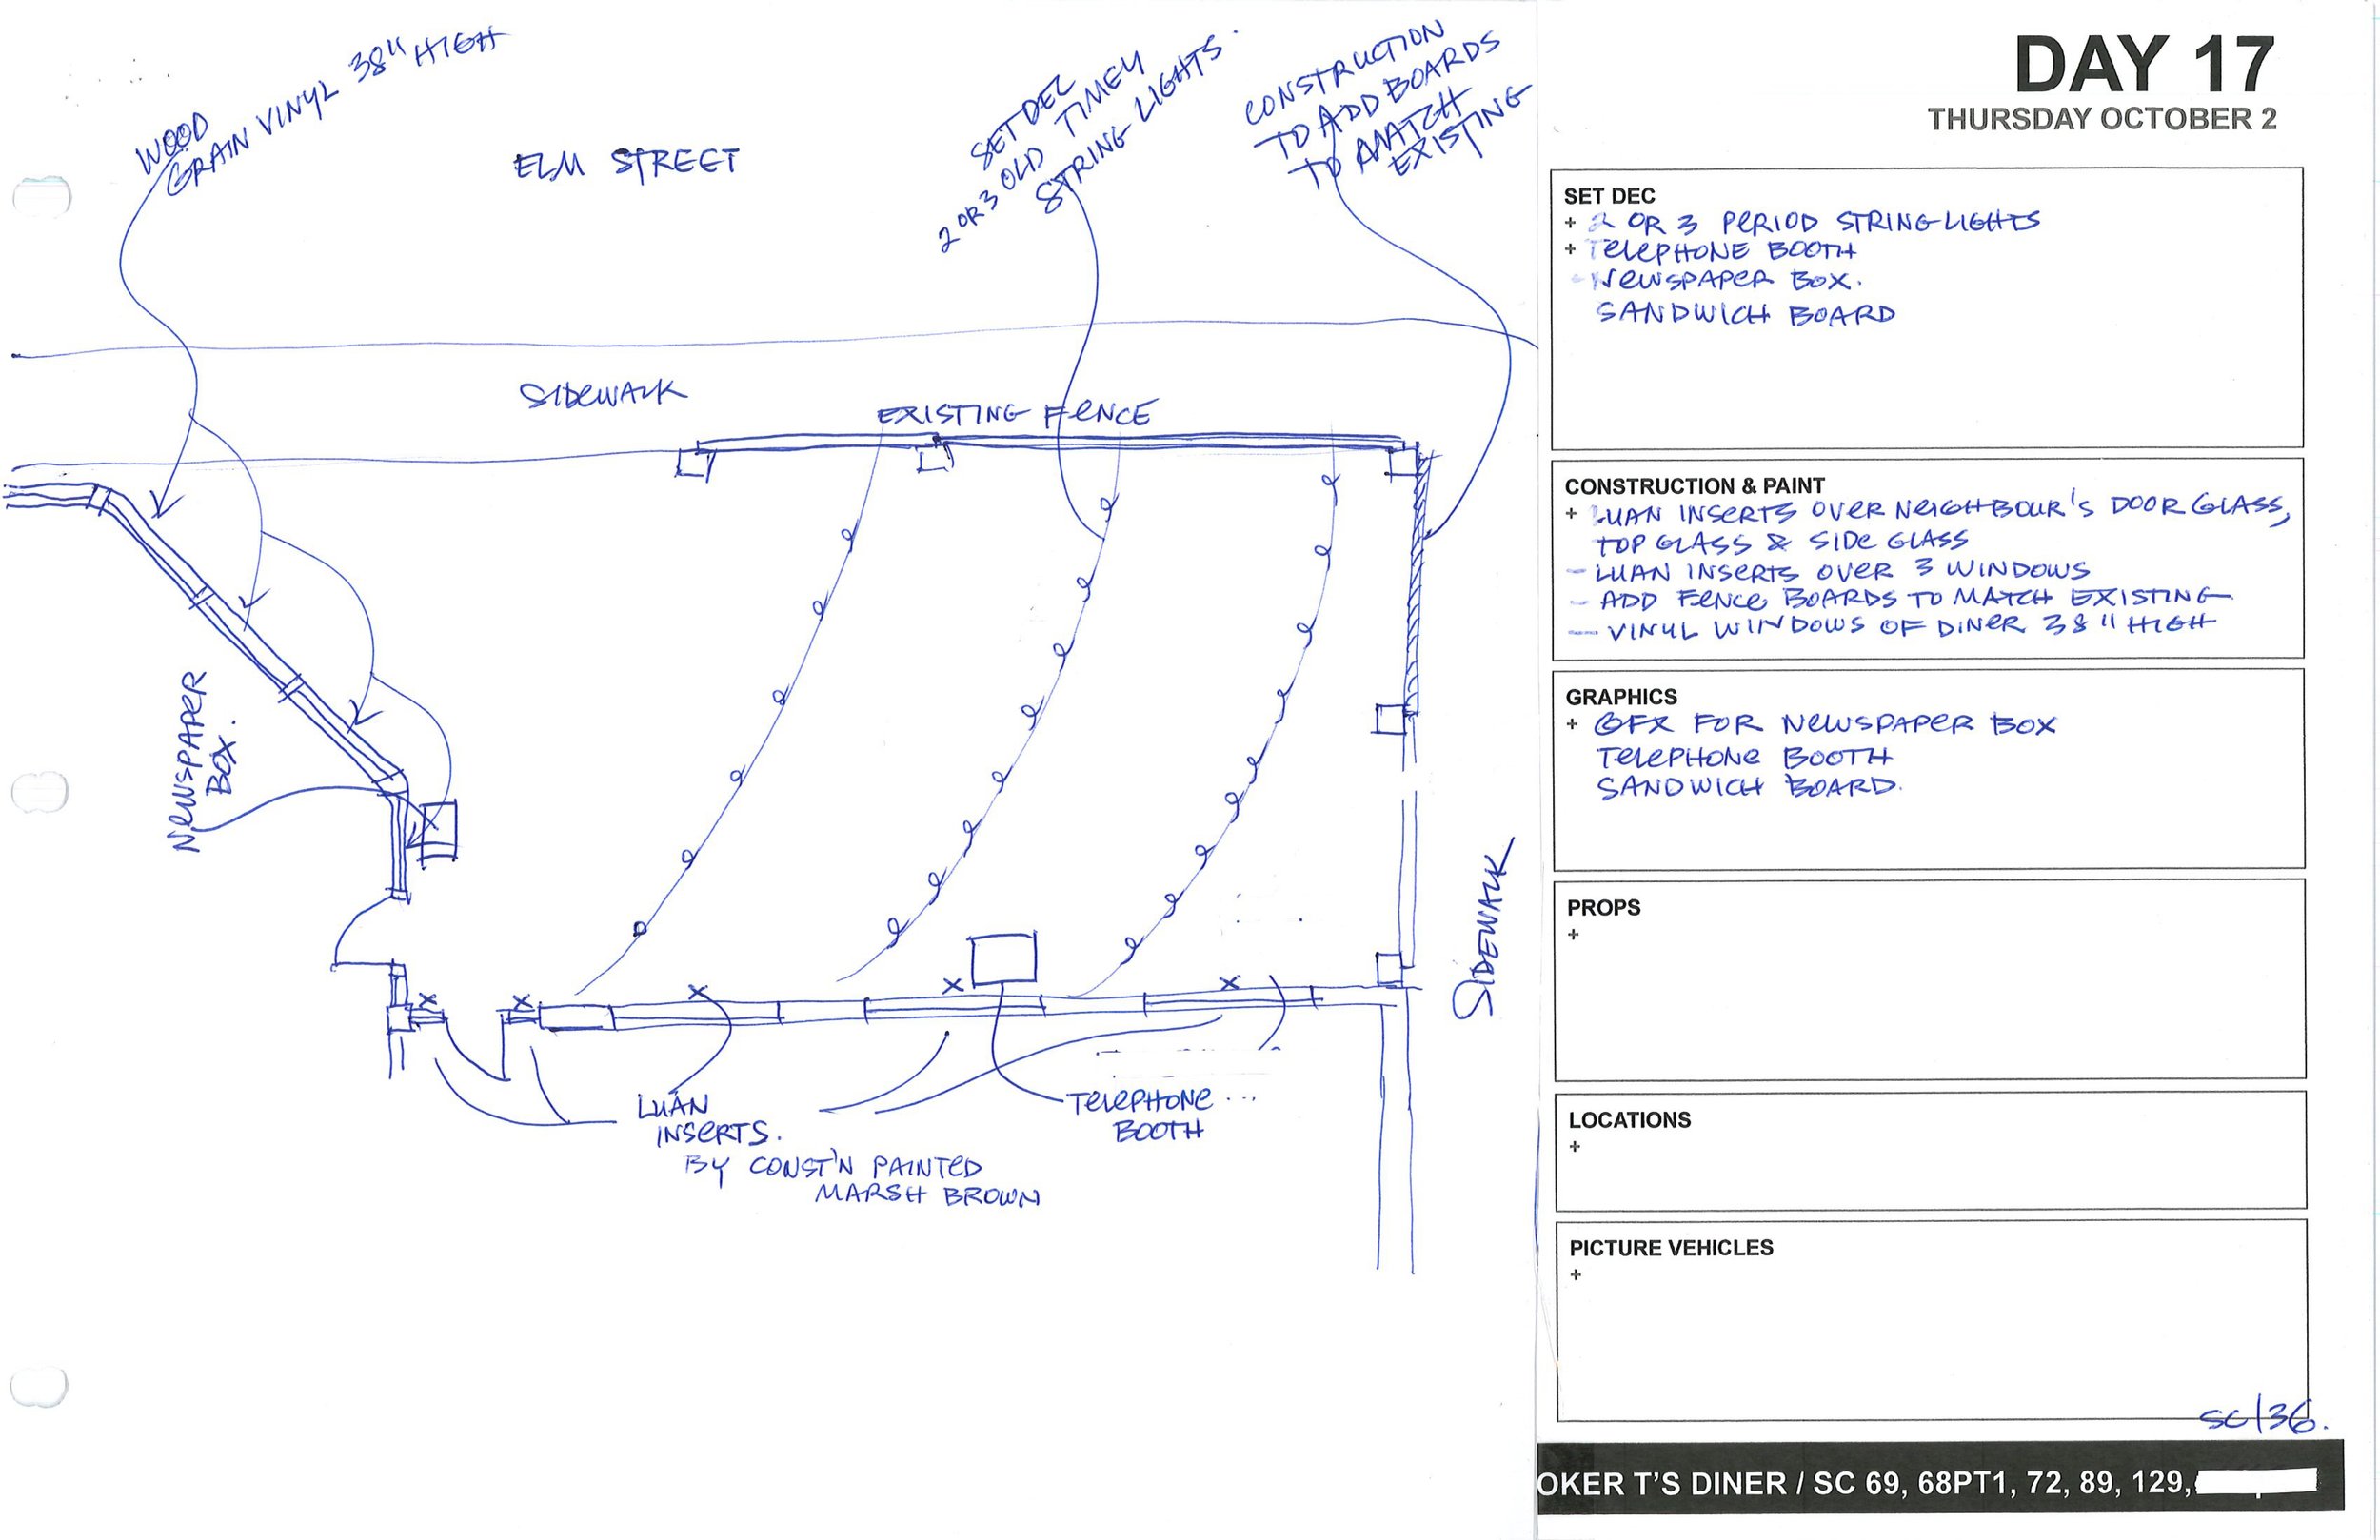 WOOD
GRAIN VINYL 38" HIGH
ELM STREET
SET DEC
2 OR 3 OLD TIMEY
STRING LIGHTS.
CONSTRUCTION
TO ADD BOARDS
TO MATCH
EXISTING
SIDEWALK
EXISTING FENCE
NEWSPAPER
BOX.
SIDEWALK
LUAN
INSERTS.
BY CONST'N PAINTED
MARSH BROWN
TELEPHONE ...
BOOTH
DAY 17
THURSDAY OCTOBER 2
SET DEC
+ 2 OR 3 PERIOD STRING LIGHTS
+ TELEPHONE BOOTH
- NEWSPAPER BOX.
SANDWICH BOARD
CONSTRUCTION & PAINT
+ LUAN INSERTS OVER NEIGHBOUR'S DOOR GLASS,
TOP GLASS & SIDE GLASS
- LUAN INSERTS OVER 3 WINDOWS
- ADD FENCE BOARDS TO MATCH EXISTING
- VINYL WINDOWS OF DINER 38" HIGH
GRAPHICS
+ GFX FOR NEWSPAPER BOX
TELEPHONE BOOTH
SANDWICH BOARD.
PROPS
+
LOCATIONS
+
PICTURE VEHICLES
+
SC 136.
OKER T'S DINER / SC 69, 68PT1, 72, 89, 129,